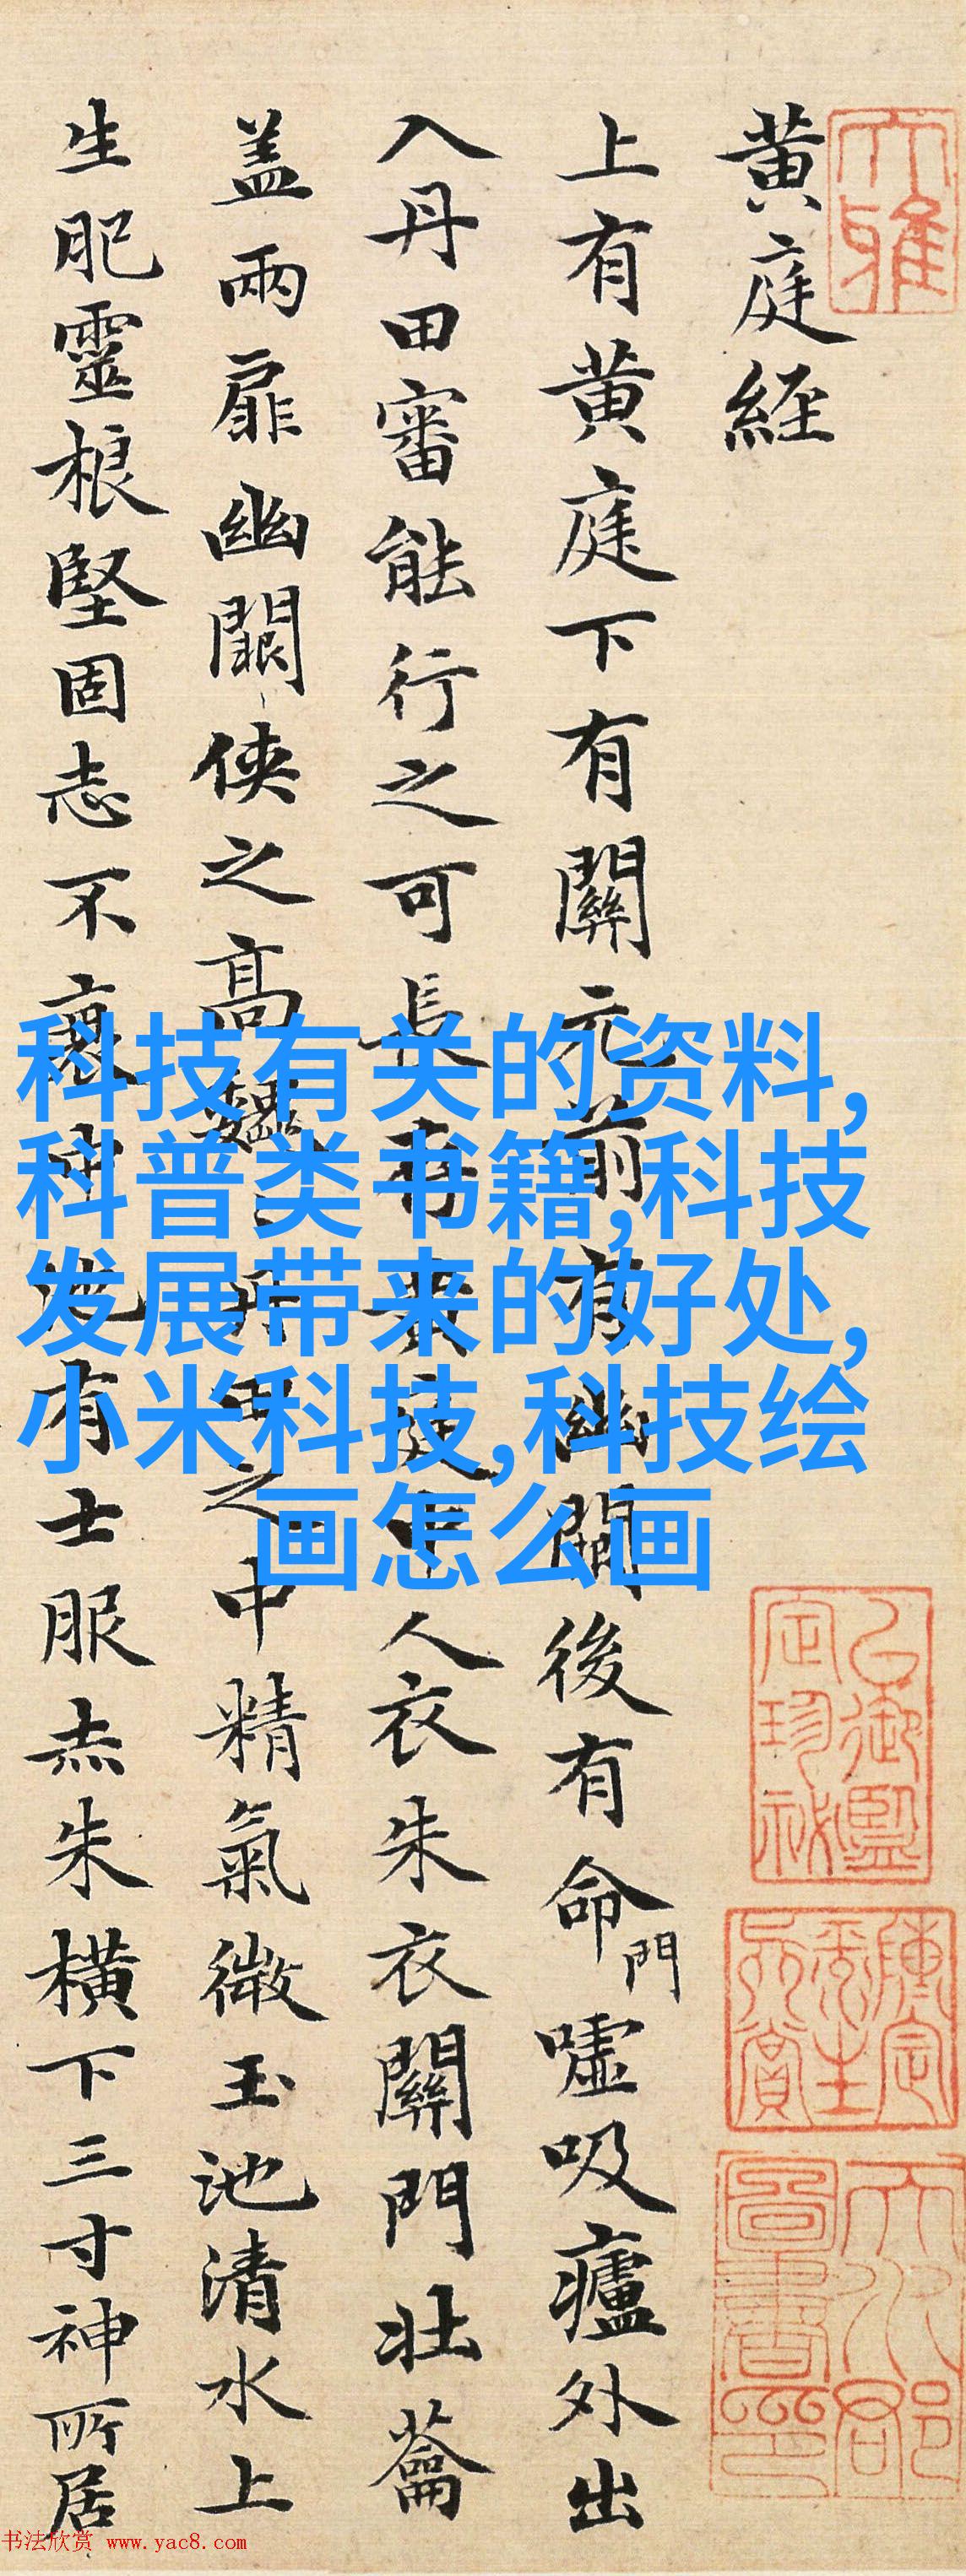 大雅
黄庭経
上有黄庭下有關元前有幽闕後有命門嘘吸廬外出
入丹田審能行之可長存黄庭中人衣朱衣關門壯蘥
盖兩扉幽闕侠之高巍巍丹田之中精氣微玉池清水上
生肥靈根堅固志不衰中池有士服赤朱横下三寸神所居
科技有关的资料,
科普类书籍,科技
发展带来的好处,
小米科技,科技绘
画怎么画
书法欣赏 www.yac8.com